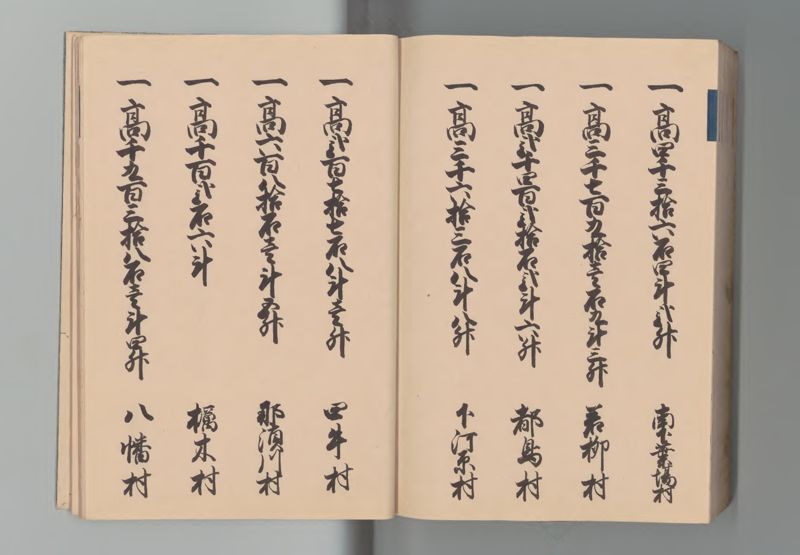 一高四千三拾六石四斗弐升 南下葉場村
一高三千七百九拾壱石九斗三升 若柳村
一高弐千四百弐拾石弐斗六升 都鳥村
一高三千六拾三石八斗八升 下河原村
一高弐百七拾七石八斗壱升 四牛村
一高六百八拾石壱斗五升 那須川村
一高千百弐石六斗 村
一高千九百三拾八石壱斗四升 八幡村